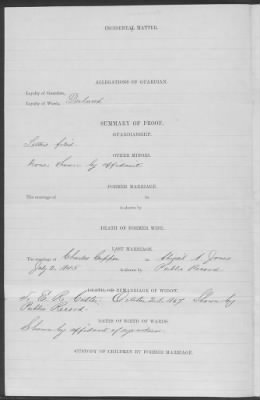 INCIDENTAL MATTER.
ALLEGATIONS OF GUARDIAN.
Loyalty of Guardian,
Loyalty of Wards, Declared
SUMMARY OF PROOF.
GUARDIANSHIP.
Letters filed.
OTHER MINORS.
None. Shown by affidavit.
FORMER MARRIAGE.
The marriage of to
is shown by
DEATH OF FORMER WIFE.
LAST MARRIAGE.
The marriage of Charles to Abigail A. Jones
July 2, is shown by Public Record.
DEATH OR REMARRIAGE OF WIDOW.
To E. R. Shown by
Public Record.
DATES OF BIRTH OF WARDS.
Shown by affidavit of
CUSTODY OF CHILDREN BY FORMER MARRIAGE.